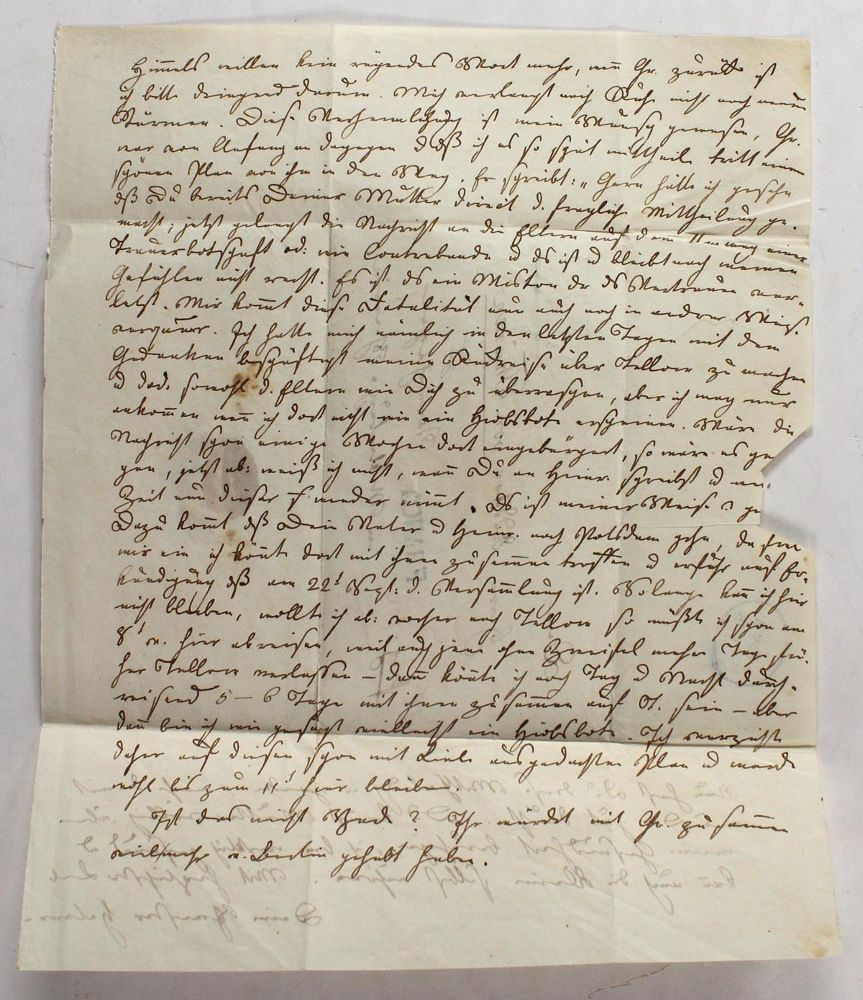 Himmels willen kein rügendes Wort mehr, wenn Hr. zurück ist
ich bitte dringend darum. Mich verlangt nach Ruhe nicht nach neuen
Stürmen. Diese Verheimlichung ist mein Wunsch gewesen, Hr.
war von Anfang an dagegen u daß ich es so spät mittheile tritt einem
schönen Plan von ihm in den Weg. Er schreibt: "Gern hätte ich gesehn
daß Du bereits Deiner Mutter direct d. fragliche Mittheilung ge-
macht; jetzt gelangt die Nachricht an die Eltern auf dem einer
Trauerbotschaft od: wie Contrebande u ds ist u bleibt nach meinen
Gefühlen nicht recht. Es ist ds ein Miston der ds Vertrauen ver-
letzt. Mir kommt diese Fatalität nun auch noch in andrer Weise
vergnügen. Ich hatte mich nämlich in den letzten Tagen mit dem
Gedanken beschäftigt meine Rückreise über Tellow zu machen
u dad: sowohl d. Eltern wie Dich zu überraschen, aber ich mag nur
ankommen wenn ich dort nicht wie ein Hiobsbote erscheine. Wäre die
Nachricht schon einige Wochen dort eingebürgert, so wäre es ge-
gen, jetzt ab: weiß ich nicht, wann Du an Heinr. schreibst u
Zeit nun dieser wieder nimmt. Ds ist meiner Weise
Dazu kommt daß Dein Vater u Heinr. nach Potsdam gehn, da fiel
mir ein ich könte dort mit ihnen zusammen treffen u erfuhr auf Er-
kundigung daß am 22t Sept: d. Versammlung ist. So lange kan ich hier
nicht bleiben, wollte ich ab: vorher nach Tellow so müßte ich schon am
8t v. hier abreisen, weil auch jene ohne Zweifel mehre Tage frü-
her Tellow verlassen – dann könte ich noch Tag u Nacht durch-
reisend 5 – 6 Tage mit ihnen zusammen auf T. sein – aber
dan bin ich wie gesagt vielleicht ein Hiobsbote. Ich verzichte
daher auf diesen schon mit Liebe ausgedachten Plan u werde
wohl bis zum 11t hier bleiben.
Ist das nicht Schade? Ihr würdet mit Hr. zusammen
vielmehr v. Berlin gehabt haben.